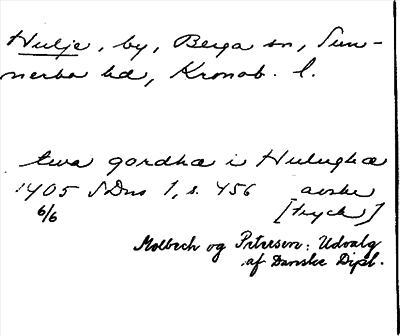 Hulje, by, Berga sn, Sun-
nerbo hd, Kronob. l.
twa gordha i Hulughæ
1405 SDns 1, s. 456 avskr
6/6 [tryck]
Molbech og Petersen: Udvalg
af Danske Dipl.